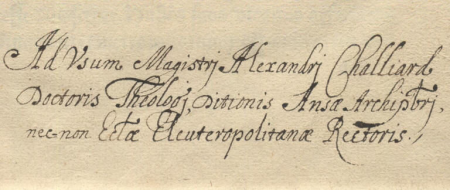 Ad Usum Magistrj Alexandrj Challiard
Doctoris Theologj, Ditionis Ansæ Archiptrj,
nec-non Ectæ Eleuteropolitanæ Rectoris.